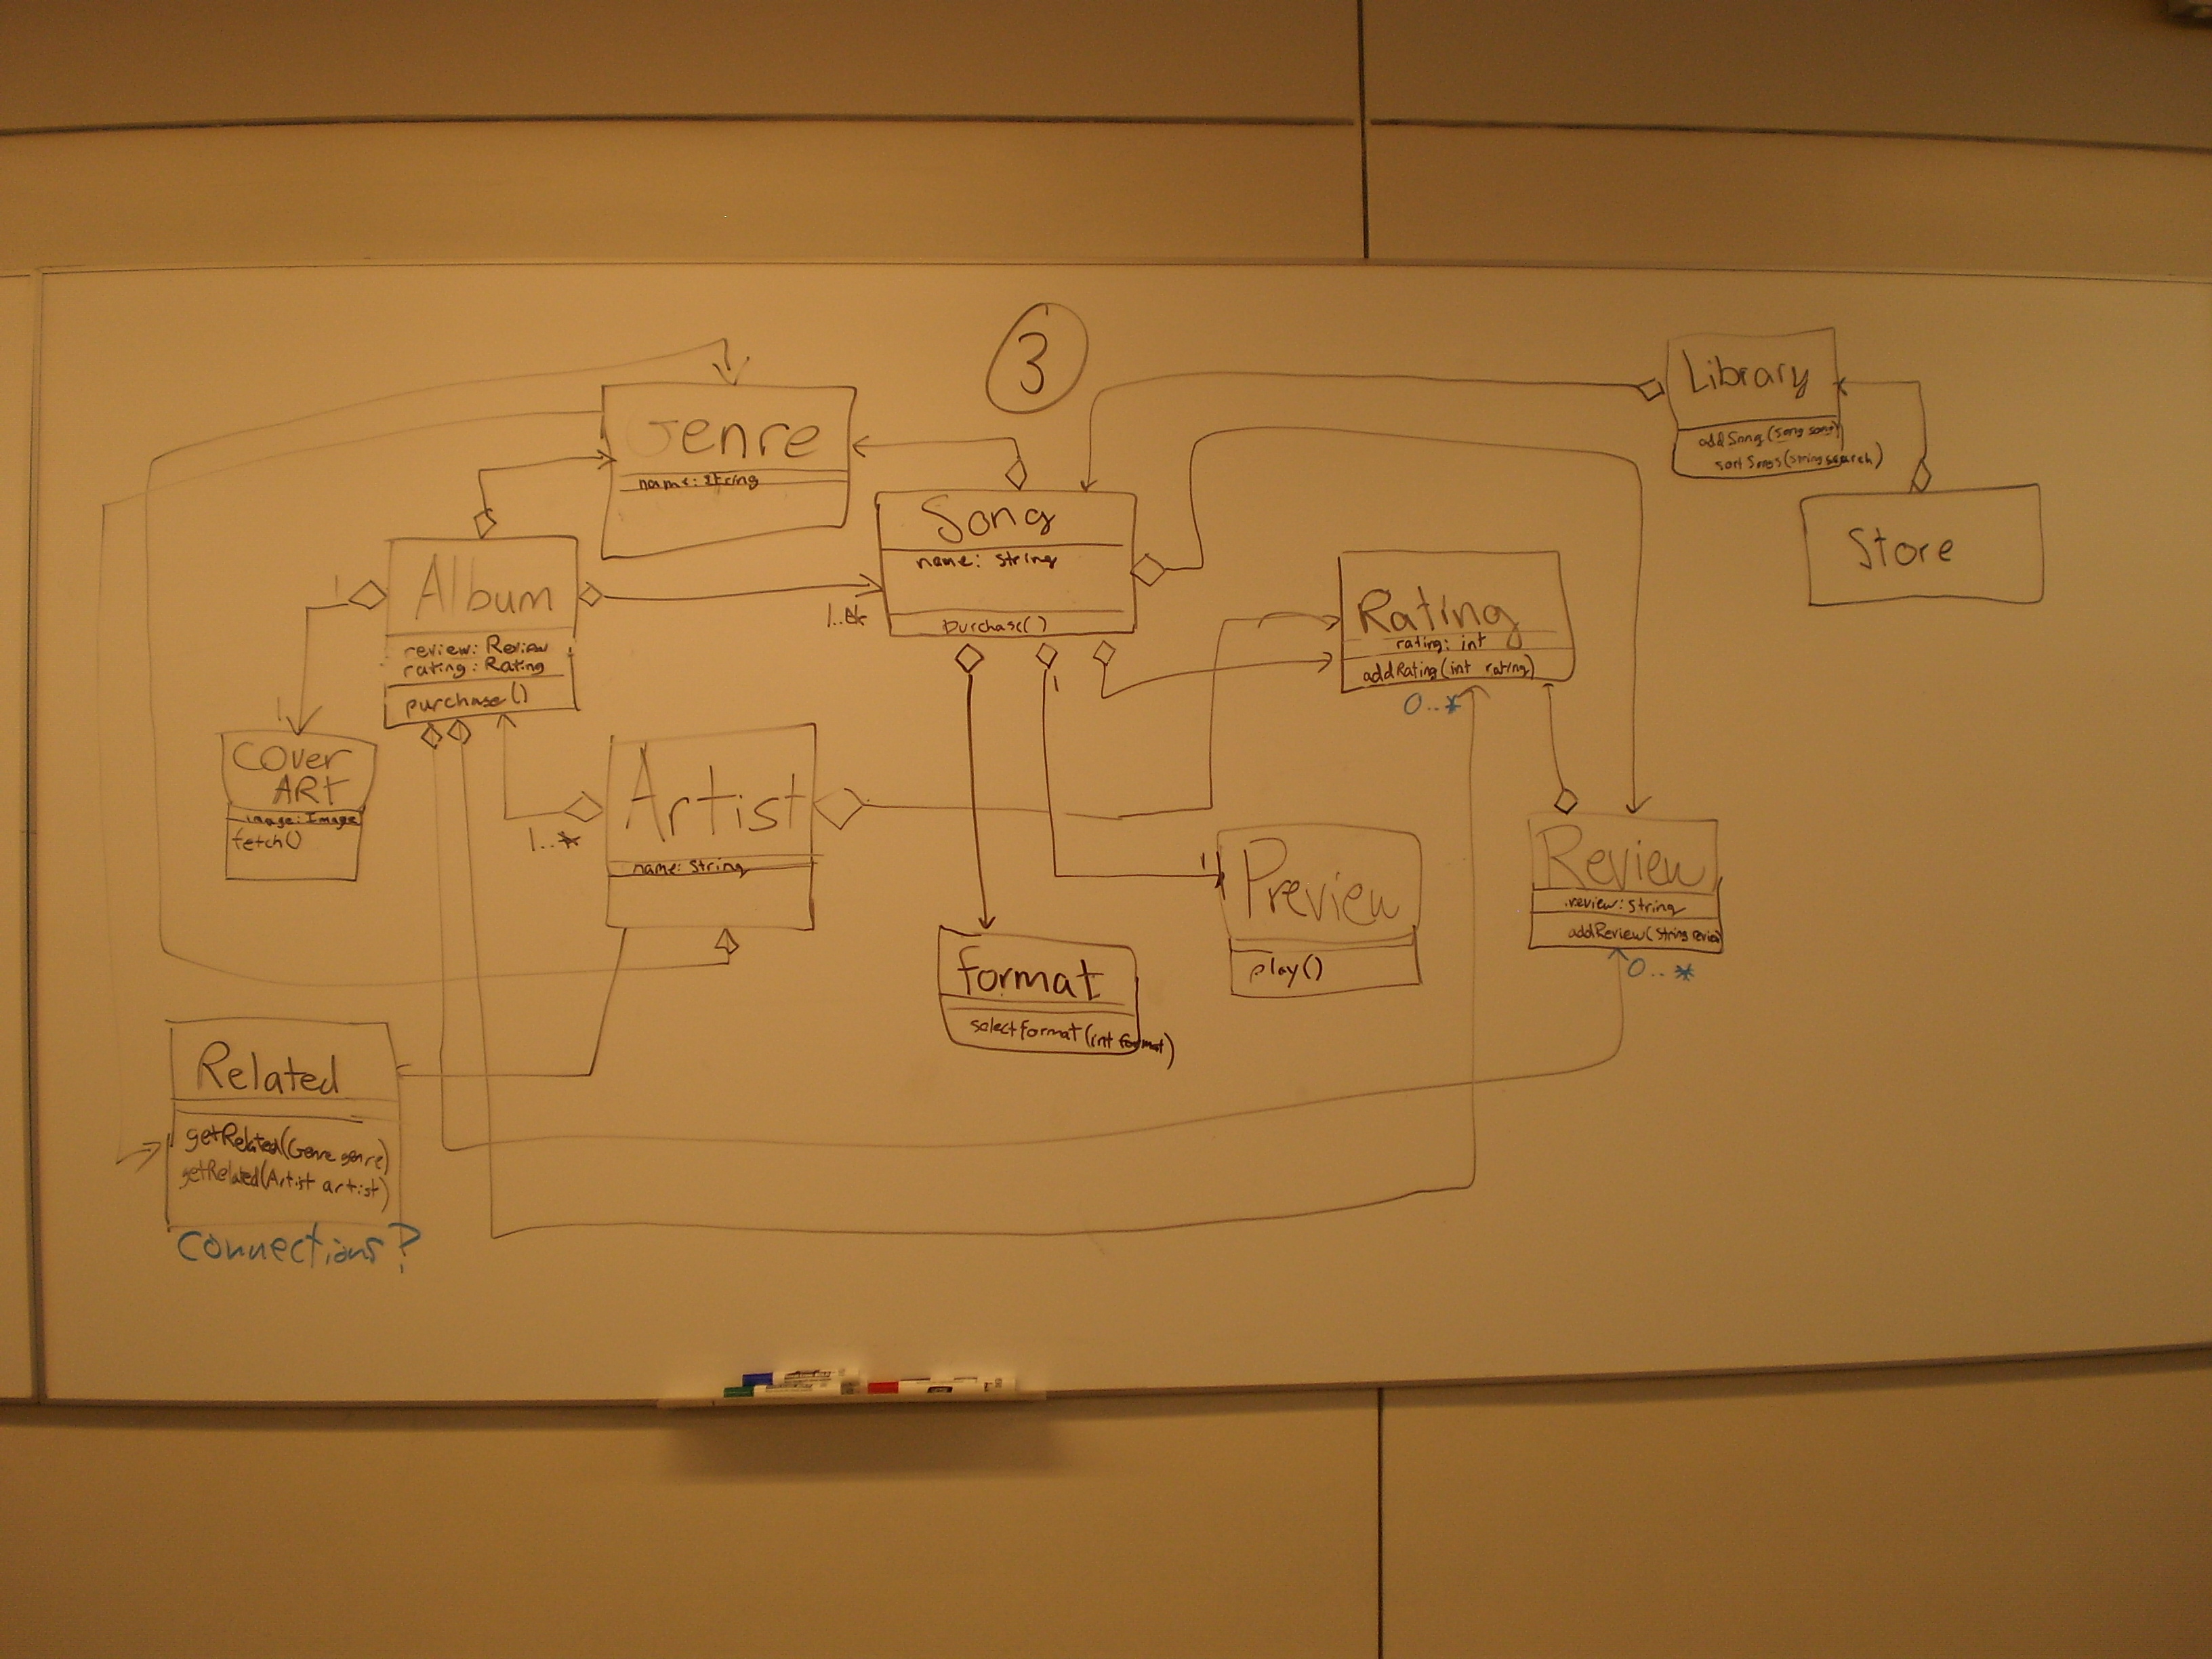 3
Library
addSong(Song song)
sortSongs(String search)
Genre
name: String
Song
name: String
purchase()
Store
Album
review: Review
rating: Rating
purchase()
1
1..*
Rating
rating: int
addRating(int rating)
0..*
1
1
Cover
ART
image: Image
fetch()
Artist
name: String
1..*
1
Preview
play()
Review
review: String
addReview(String review)
0..*
format
selectFormat(int format)
Related
getRelated(Genre genre)
getRelated(Artist artist)
Connections?